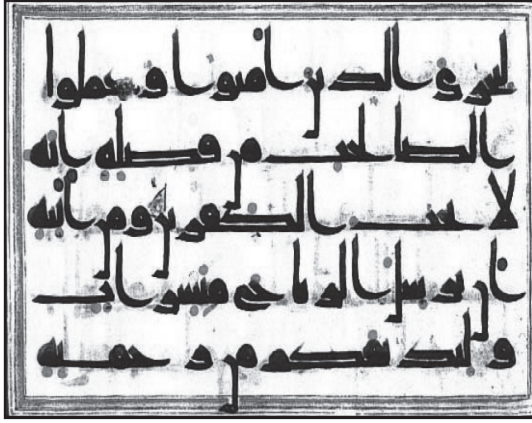 ليجزي الذين امنوا وعملوا
الصالحت من فضله انه
لا يحب الكفرين ومن ايته
ان يرسل الرياح مبشرات
وليذيقكم من رحمته